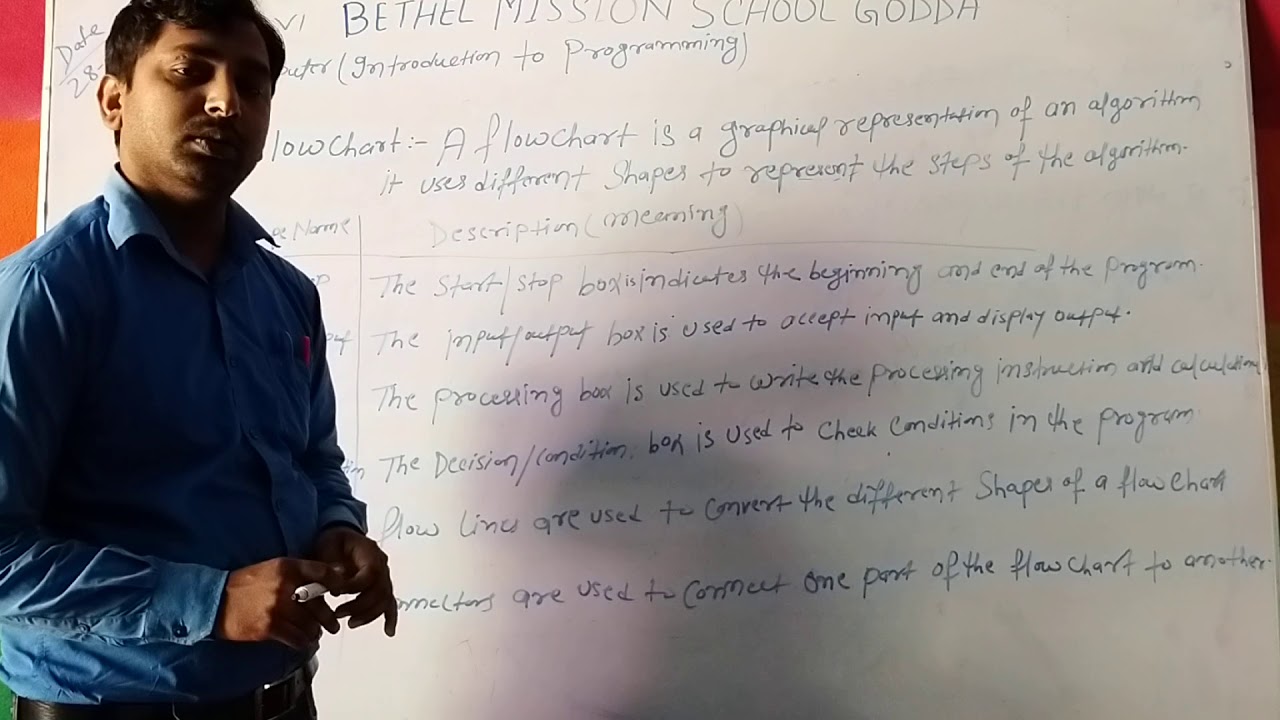 VI BETHEL MISSION SCHOOL GODDA
Date
28-
puter (Introduction to Programming)
lowchart:- A flowchart is a graphical representation of an algorithm
it uses different Shapes to represent the steps of the algorithm.
Name Description (meaning)
op The Start/stop box is indicates the beginning and end of the program.
put The input/output box is used to accept input and display output.
The processing box is used to write the processing instruction and calculation
The Decision/condition. box is used to check conditions in the program
flow lines are used to convert the different Shapes of a flowchart
nnectors are used to connect one part of the flowchart to another.